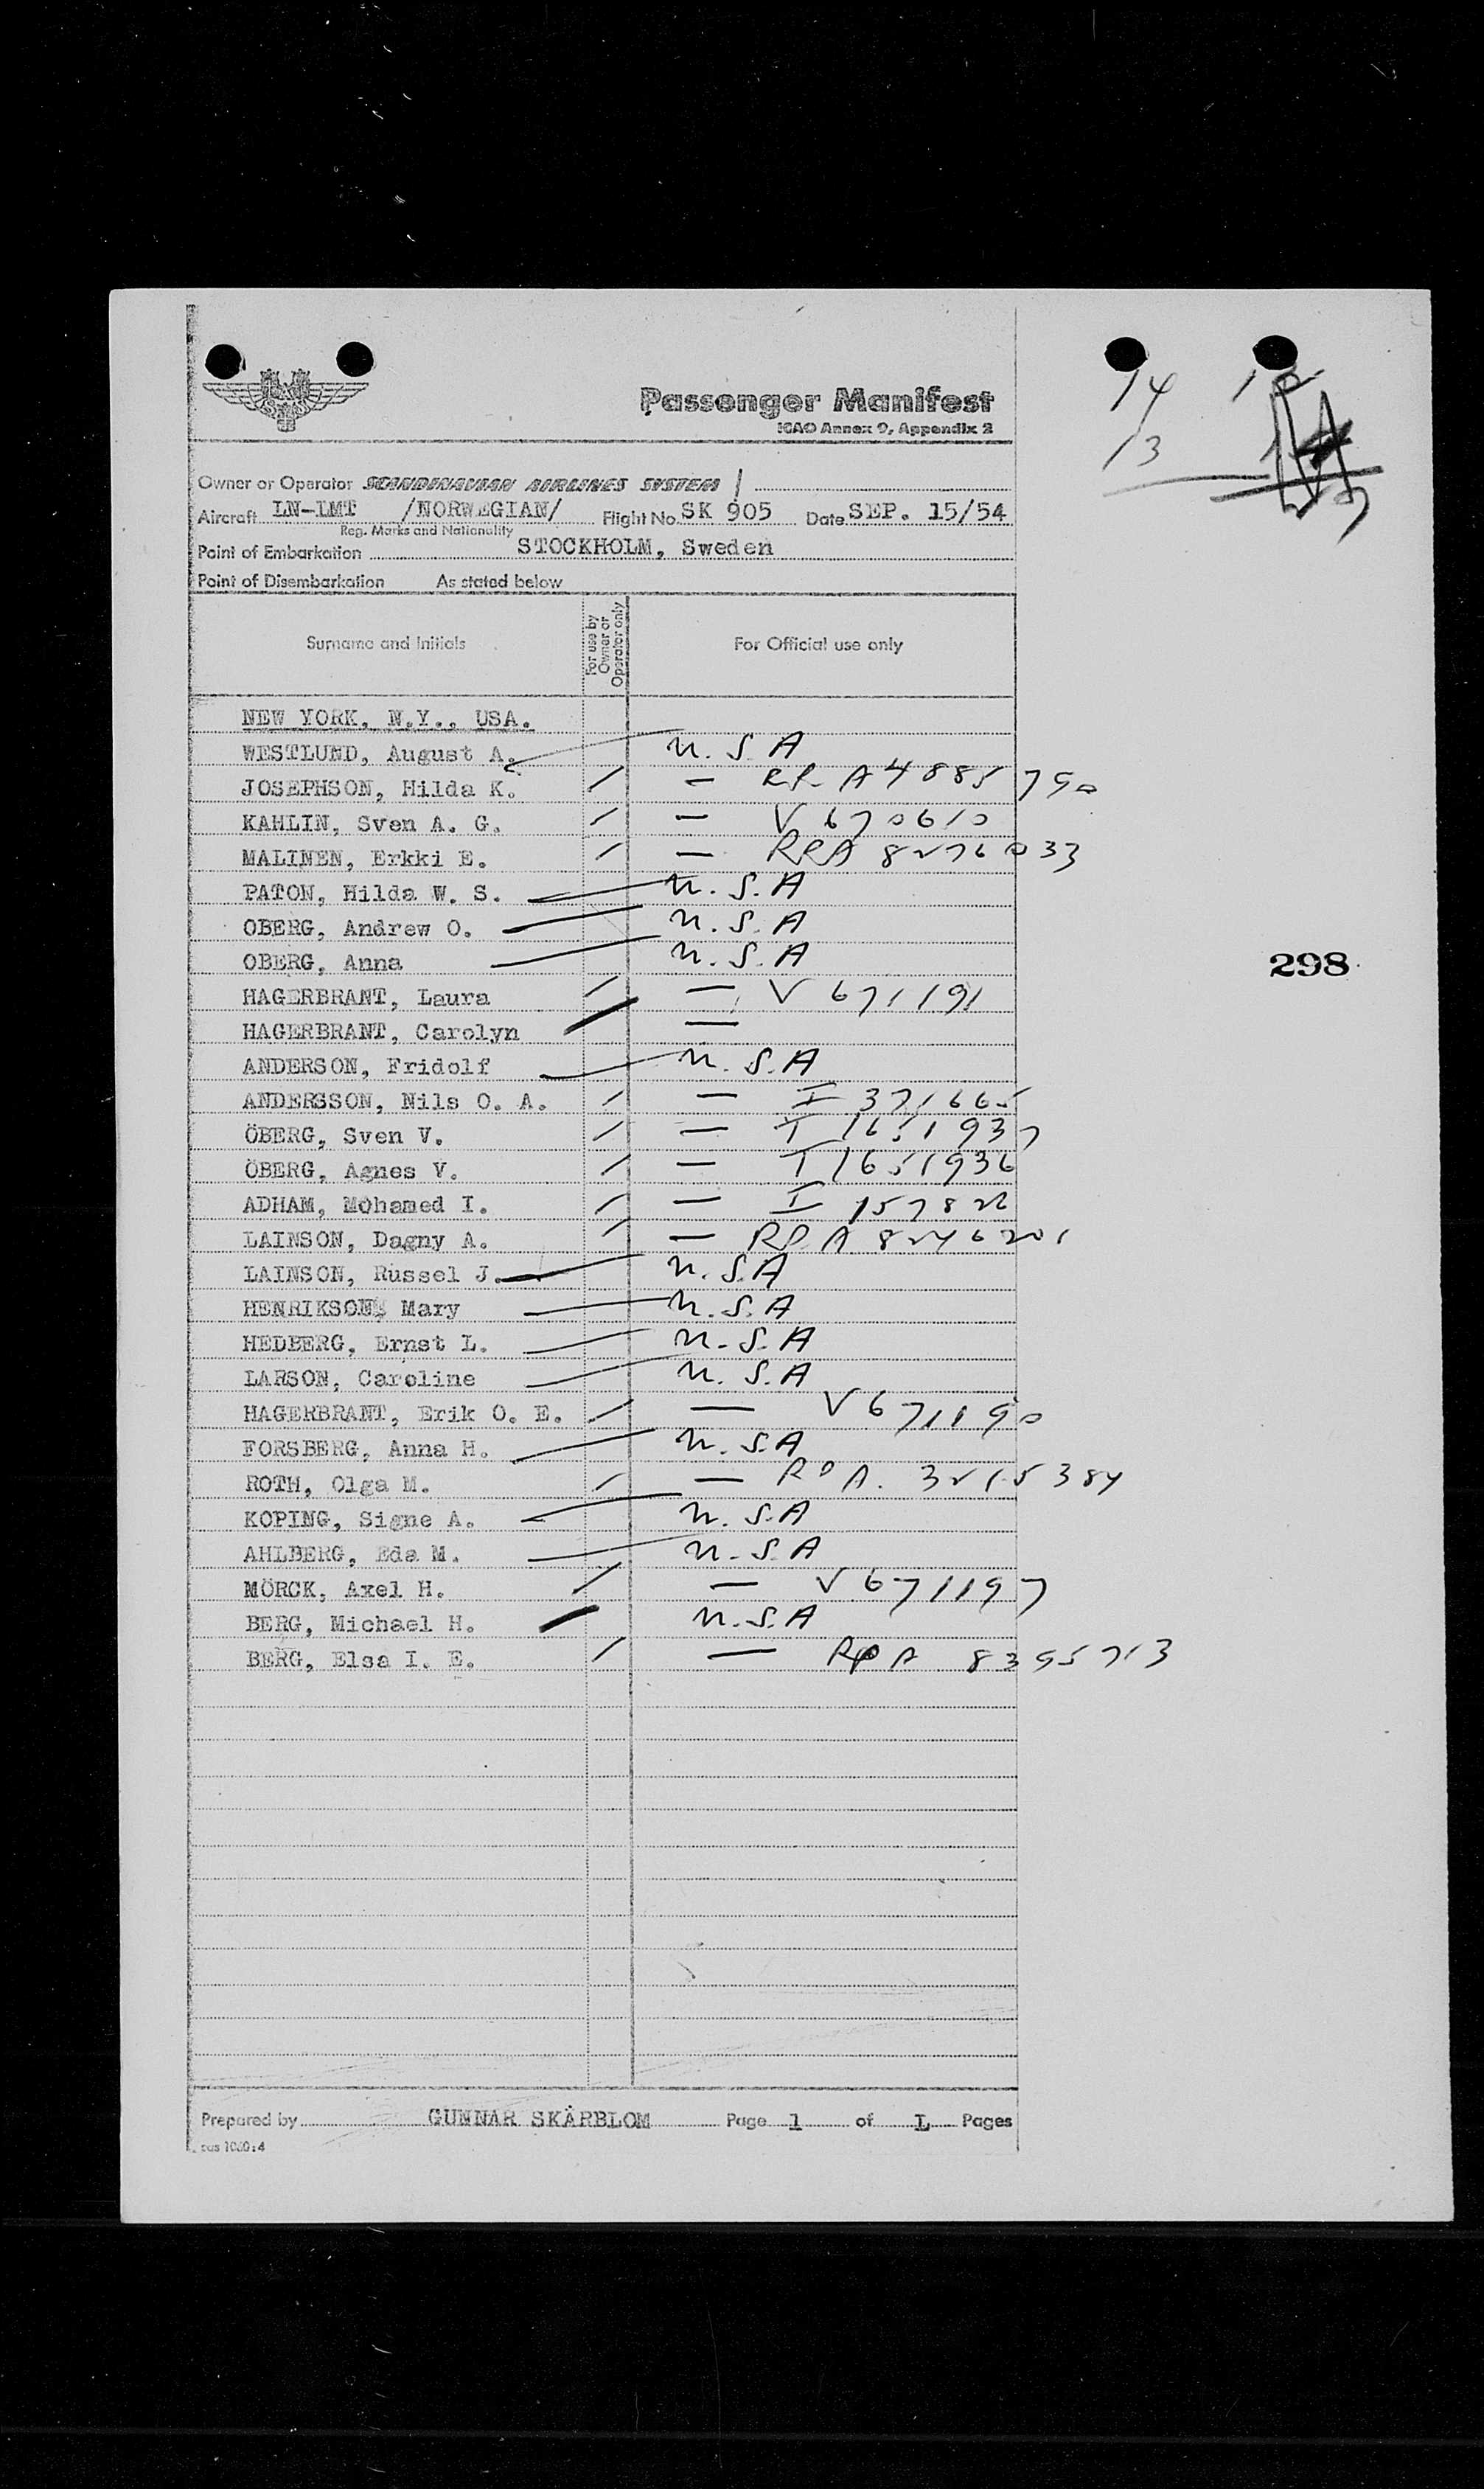 Passenger Manifest
ICAO Annex 9, Appendix 2
14
13
Owner or Operator SCANDINAVIAN AIRLINES SYSTEM
Aircraft LN-LMT /NORWEGIAN/ Flight No. SK 905 Date SEP. 15/54
Reg. Marks and Nationality
Point of Embarkation STOCKHOLM, Sweden
Point of Disembarkation As stated below
Surname and Initials
For use by Owner or Operator only
For Official use only
NEW YORK, N.Y., USA.
WESTLUND, August A. U.S.A
JOSEPHSON, Hilda K. / — RP A4885790
KAHLIN, Sven A. G. / — V 670610
MALINEN, Erkki E. / — RPA 8276033
PATON, Hilda W. S. U.S.A
OBERG, Andrew O. U.S.A
OBERG, Anna U.S.A
298
HAGERBRANT, Laura / — V 671191
HAGERBRANT, Carolyn / —
ANDERSON, Fridolf U.S.A
ANDERSSON, Nils O. A. / — I 371665
ÖBERG, Sven V. / — I 1651937
ÖBERG, Agnes V. / — I 1651936
ADHAM, Mohamed I. / — I 157822
LAINSON, Dagny A. / — RP A 8246201
LAINSON, Russel J. U.S.A
HENRIKSON, Mary U.S.A
HEDBERG, Ernst L. U.S.A
LARSON, Caroline U.S.A
HAGERBRANT, Erik O. E. / — V 671190
FORSBERG, Anna H. U.S.A
ROTH, Olga M. / — RP A. 3215384
KOPING, Signe A. U.S.A
AHLBERG, Eda M. U.S.A
MÖRCK, Axel H. / — V 671197
BERG, Michael H. U.S.A
BERG, Elsa I. E. / — RP A 8395713
Prepared by GUNNAR SKÅRBLOM Page 1 of L Pages
cus 1060:4